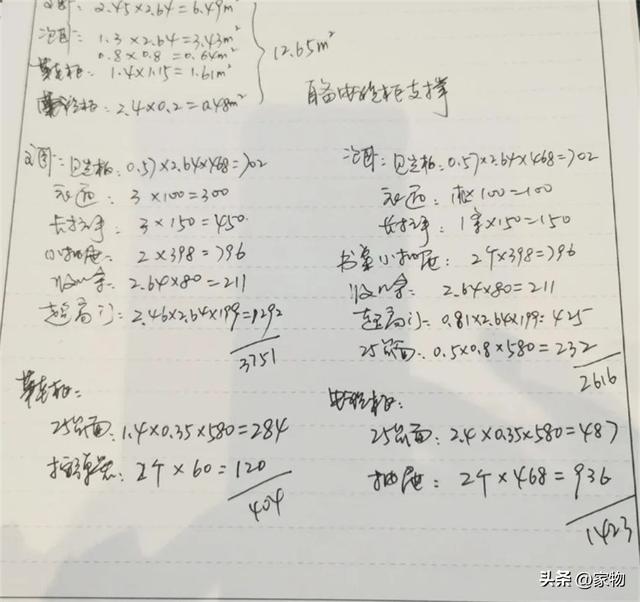 主卧: 2.45×2.64=6.49m²
次卧: 1.3×2.64=3.43m²
0.8×0.8=0.64m²
1.4×1.15=1.61m²
2.4×0.2=0.48m²
12.65m²
电视柜支撑
主卧: 见光板: 0.57×2.64×468=702
3×100=300
长拉手: 3×150=450
小抽屉: 2×398=796
收口条: 2.64×80=211
超高门: 2.46×2.64×199=1292
3751
次卧: 见光板: 0.57×2.64×468=702
×100=100
长拉手: 1套×150=150
书桌小抽屉: 2个×398=796
收口条: 2.64×80=211
超高门: 0.81×2.64×199=425
25台面: 0.5×0.8×580=232
2616
25台面: 1.4×0.35×580=284
2个×60=120
404
电视柜:
25台面: 2.4×0.35×580=487
抽屉: 2个×468=936
1423
头条 @家物